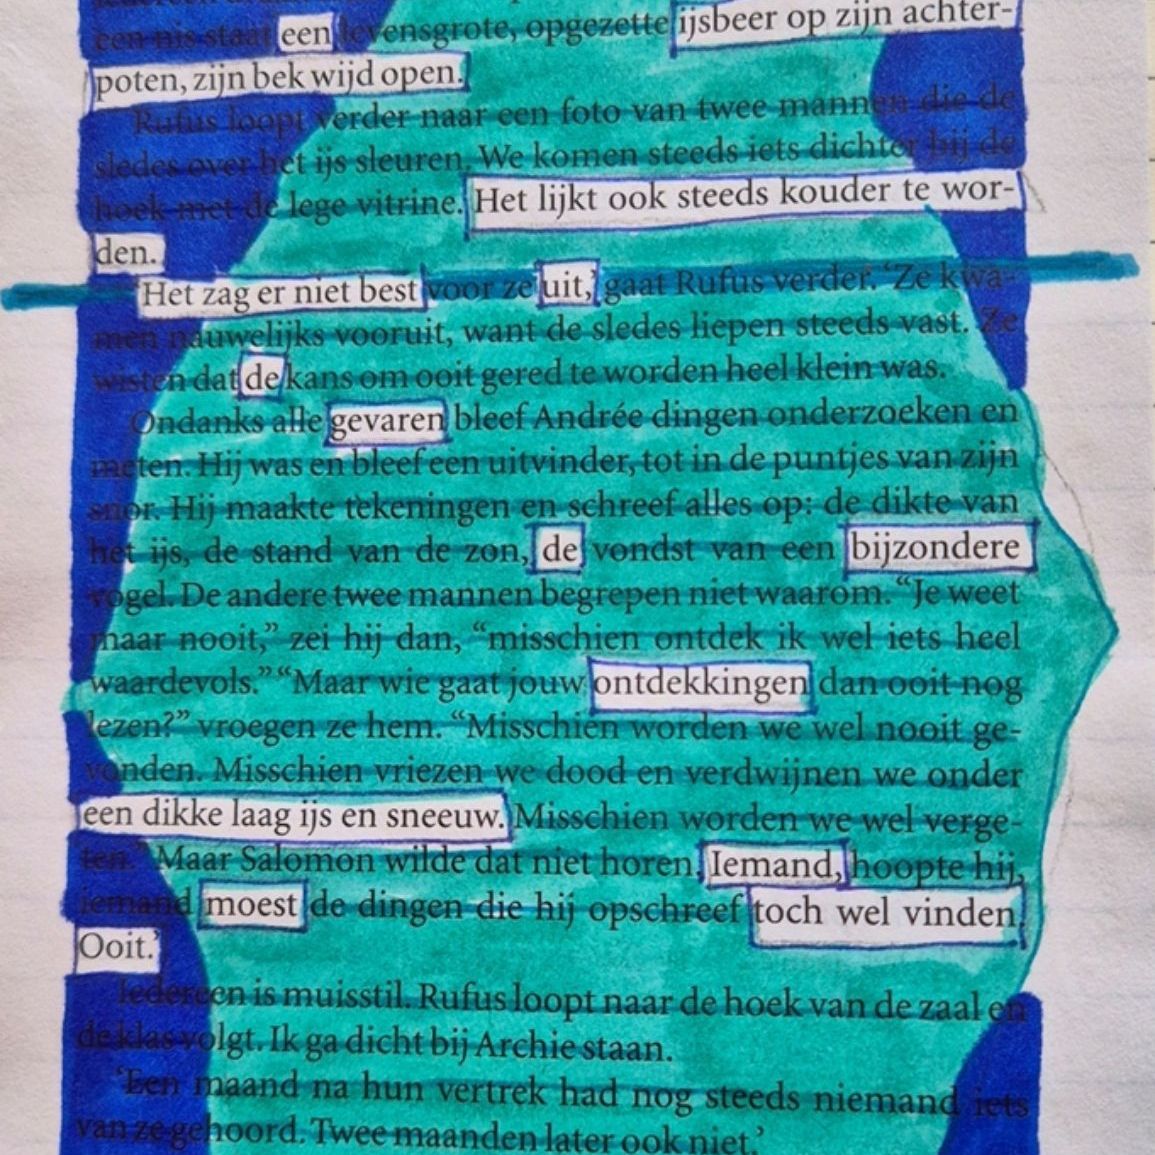 een nis staat een levensgrote, opgezette ijsbeer op zijn achter-
poten, zijn bek wijd open.
Rufus loopt verder naar een foto van twee mannen die de
sledes over het ijs sleuren. We komen steeds iets dichter bij de
hoek met de lege vitrine. Het lijkt ook steeds kouder te wor-
den.
‘Het zag er niet best voor ze uit,’ gaat Rufus verder. ‘Ze kwa-
men nauwelijks vooruit, want de sledes liepen steeds vast. Ze
wisten dat de kans om ooit gered te worden heel klein was.
Ondanks alle gevaren bleef Andrée dingen onderzoeken en
meten. Hij was en bleef een uitvinder, tot in de puntjes van zijn
snor. Hij maakte tekeningen en schreef alles op: de dikte van
het ijs, de stand van de zon, de vondst van een bijzondere
vogel. De andere twee mannen begrepen niet waarom. “Je weet
maar nooit,” zei hij dan, “misschien ontdek ik wel iets heel
waardevols.” “Maar wie gaat jouw ontdekkingen dan ooit nog
lezen?” vroegen ze hem. “Misschien worden we wel nooit ge-
vonden. Misschien vriezen we dood en verdwijnen we onder
een dikke laag ijs en sneeuw. Misschien worden we wel verge-
ten.” Maar Salomon wilde dat niet horen. Iemand, hoopte hij,
iemand moest de dingen die hij opschreef toch wel vinden.
Ooit.’
Iedereen is muisstil. Rufus loopt naar de hoek van de zaal en
de klas volgt. Ik ga dicht bij Archie staan.
‘Een maand na hun vertrek had nog steeds niemand iets
van ze gehoord. Twee maanden later ook niet.’